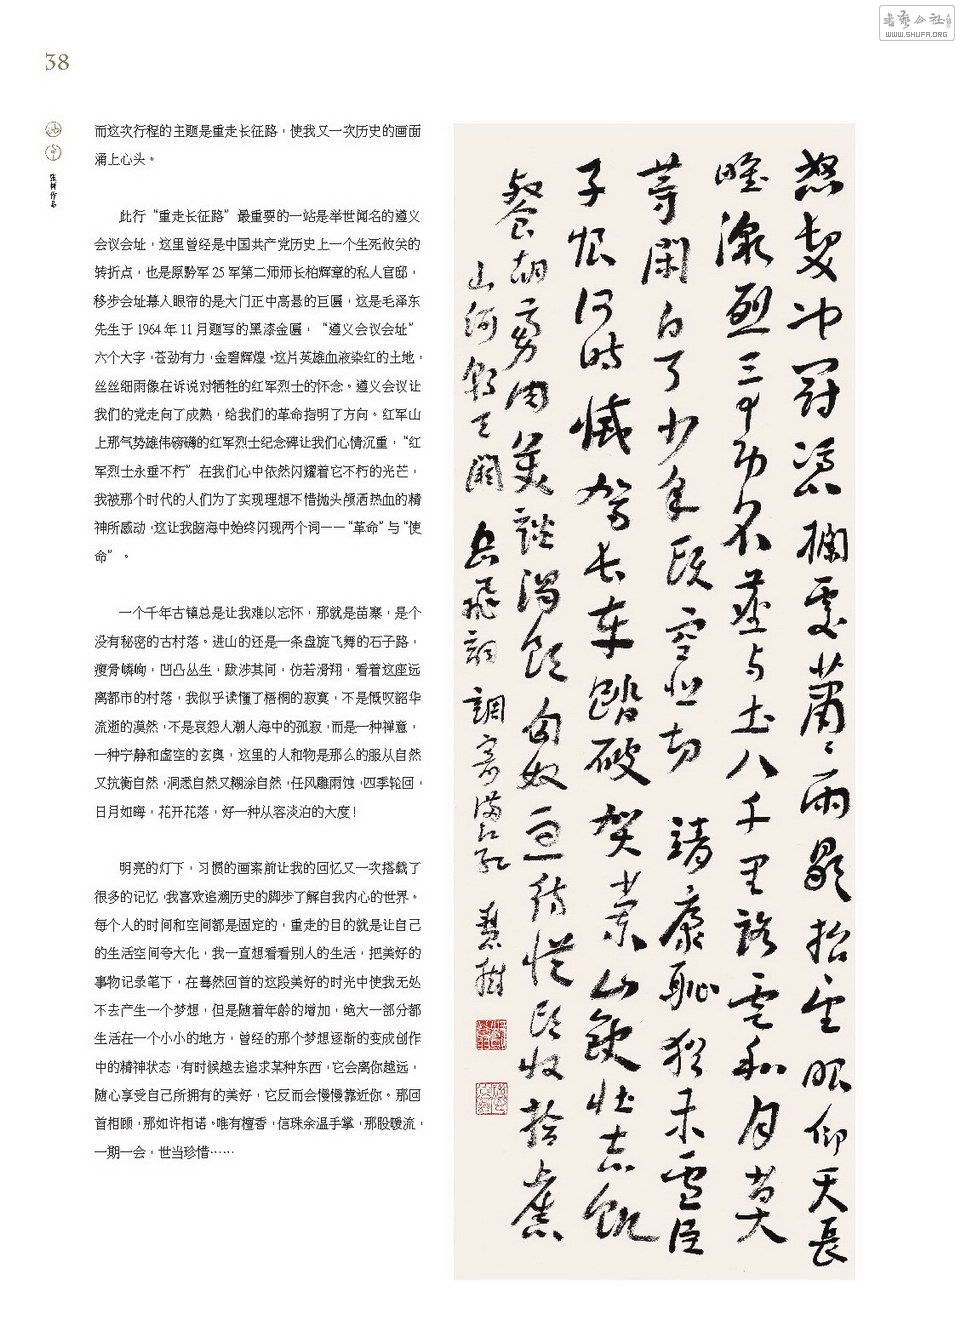 書藝公社
WWW.SHUFA.ORG
38
而这次行程的主题是重走长征路，使我又一次历史的画面
涌上心头。
此行“重走长征路”最重要的一站是举世闻名的遵义
会议会址，这里曾经是中国共产党历史上一个生死攸关的
转折点，也是原黔军25军第二师师长柏辉章的私人官邸，
移步会址幕入眼帘的是大门正中高悬的巨匾，这是毛泽东
先生于1964年11月题写的黑漆金匾，“遵义会议会址”
六个大字，苍劲有力，金碧辉煌。这片英雄血液染红的土地，
丝丝细雨像在诉说对牺牲的红军烈士的怀念。遵义会议让
我们的党走向了成熟，给我们的革命指明了方向。红军山
上那气势雄伟磅礴的红军烈士纪念碑让我们心情沉重，“红
军烈士永垂不朽”在我们心中依然闪耀着它不朽的光芒，
我被那个时代的人们为了实现理想不惜抛头颅洒热血的精
神所感动，这让我脑海中始终闪现两个词——“革命”与“使
命”。
一个千年古镇总是让我难以忘怀，那就是苗寨，是个
没有秘密的古村落。进山的还是一条盘旋飞舞的石子路，
瘦骨嶙峋，凹凸丛生，跋涉其间，仿若滑翔，看着这座远
离都市的村落，我似乎读懂了梧桐的寂寞，不是慨叹韶华
流逝的漠然，不是哀怨人潮人海中的孤寂，而是一种禅意，
一种宁静和虚空的玄奥，这里的人和物是那么的服从自然
又抗衡自然，洞悉自然又糊涂自然，任风雕雨蚀，四季轮回，
日月如晦，花开花落，好一种从容淡泊的大度！
明亮的灯下，习惯的画案前让我的回忆又一次搭载了
很多的记忆，我喜欢追溯历史的脚步了解自我内心的世界。
每个人的时间和空间都是固定的，重走的目的就是让自己
的生活空间夸大化，我一直想看看别人的生活，把美好的
事物记录笔下，在蓦然回首的这段美好的时光中使我无处
不去产生一个梦想，但是随着年龄的增加，绝大一部分都
生活在一个小小的地方，曾经的那个梦想逐渐的变成创作
中的精神状态，有时候越去追求某种东西，它会离你越远，
随心享受自己所拥有的美好，它反而会慢慢靠近你。那回
首相顾，那如许相诺。唯有檀香，信珠余温手掌，那股暖流，
一期一会，世当珍惜……
怒髮沖冠憑欄處蕭〻雨歇抬望眼仰天長
嘯激烈三十功名塵与土八千里路雲和月莫
等閑白了少年頭空悲切 靖康恥猶未雪臣
子恨何時滅駕長車踏破賀蘭山缺壯志飢
餐胡虜肉笑談渴飲匈奴血待從頭收拾舊
山河朝天闕 岳飛詞 調寄滿江紅